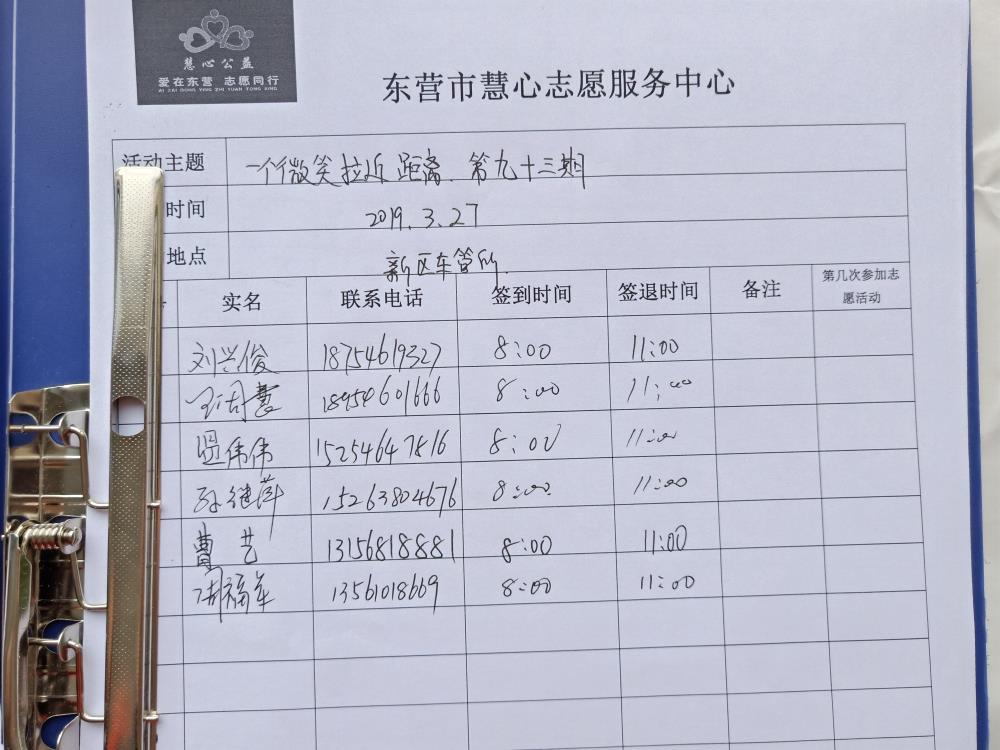 慧心公益
爱在东营 志愿同行
AI ZAI DONG YING ZHI YUAN TONG XING
东营市慧心志愿服务中心
活动主题 一个微笑拉近距离.第九十三期
时间 2019.3.27
地点 新区车管所.
实名 联系电话 签到时间 签退时间 备注 第几次参加志愿活动
刘兴俊 18754619327 8:00 11:00
18954601666 8:00 11:00
温伟伟 15254647816 8:00 11:00
孙继萍 15263804676 8:00 11:00
曹艺 13156818881 8:00 11:00
福军 13561018669 8:00 11:00